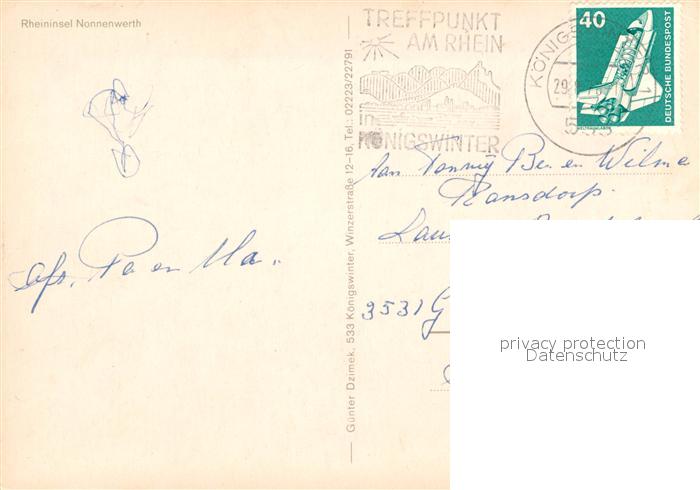 Rheininsel Nonnenwerth
TREFFPUNKT
AM RHEIN
in
KÖNIGSWINTER
40
DEUTSCHE BUNDESPOST
Aan Tonny Ben en Wilma
Ransdorp.
3531 G
afs. Pa en Ma.
Günter Dzimek, 533 Königswinter, Winzerstraße 12–16, Tel.: 02223/22791
privacy protection
Datenschutz